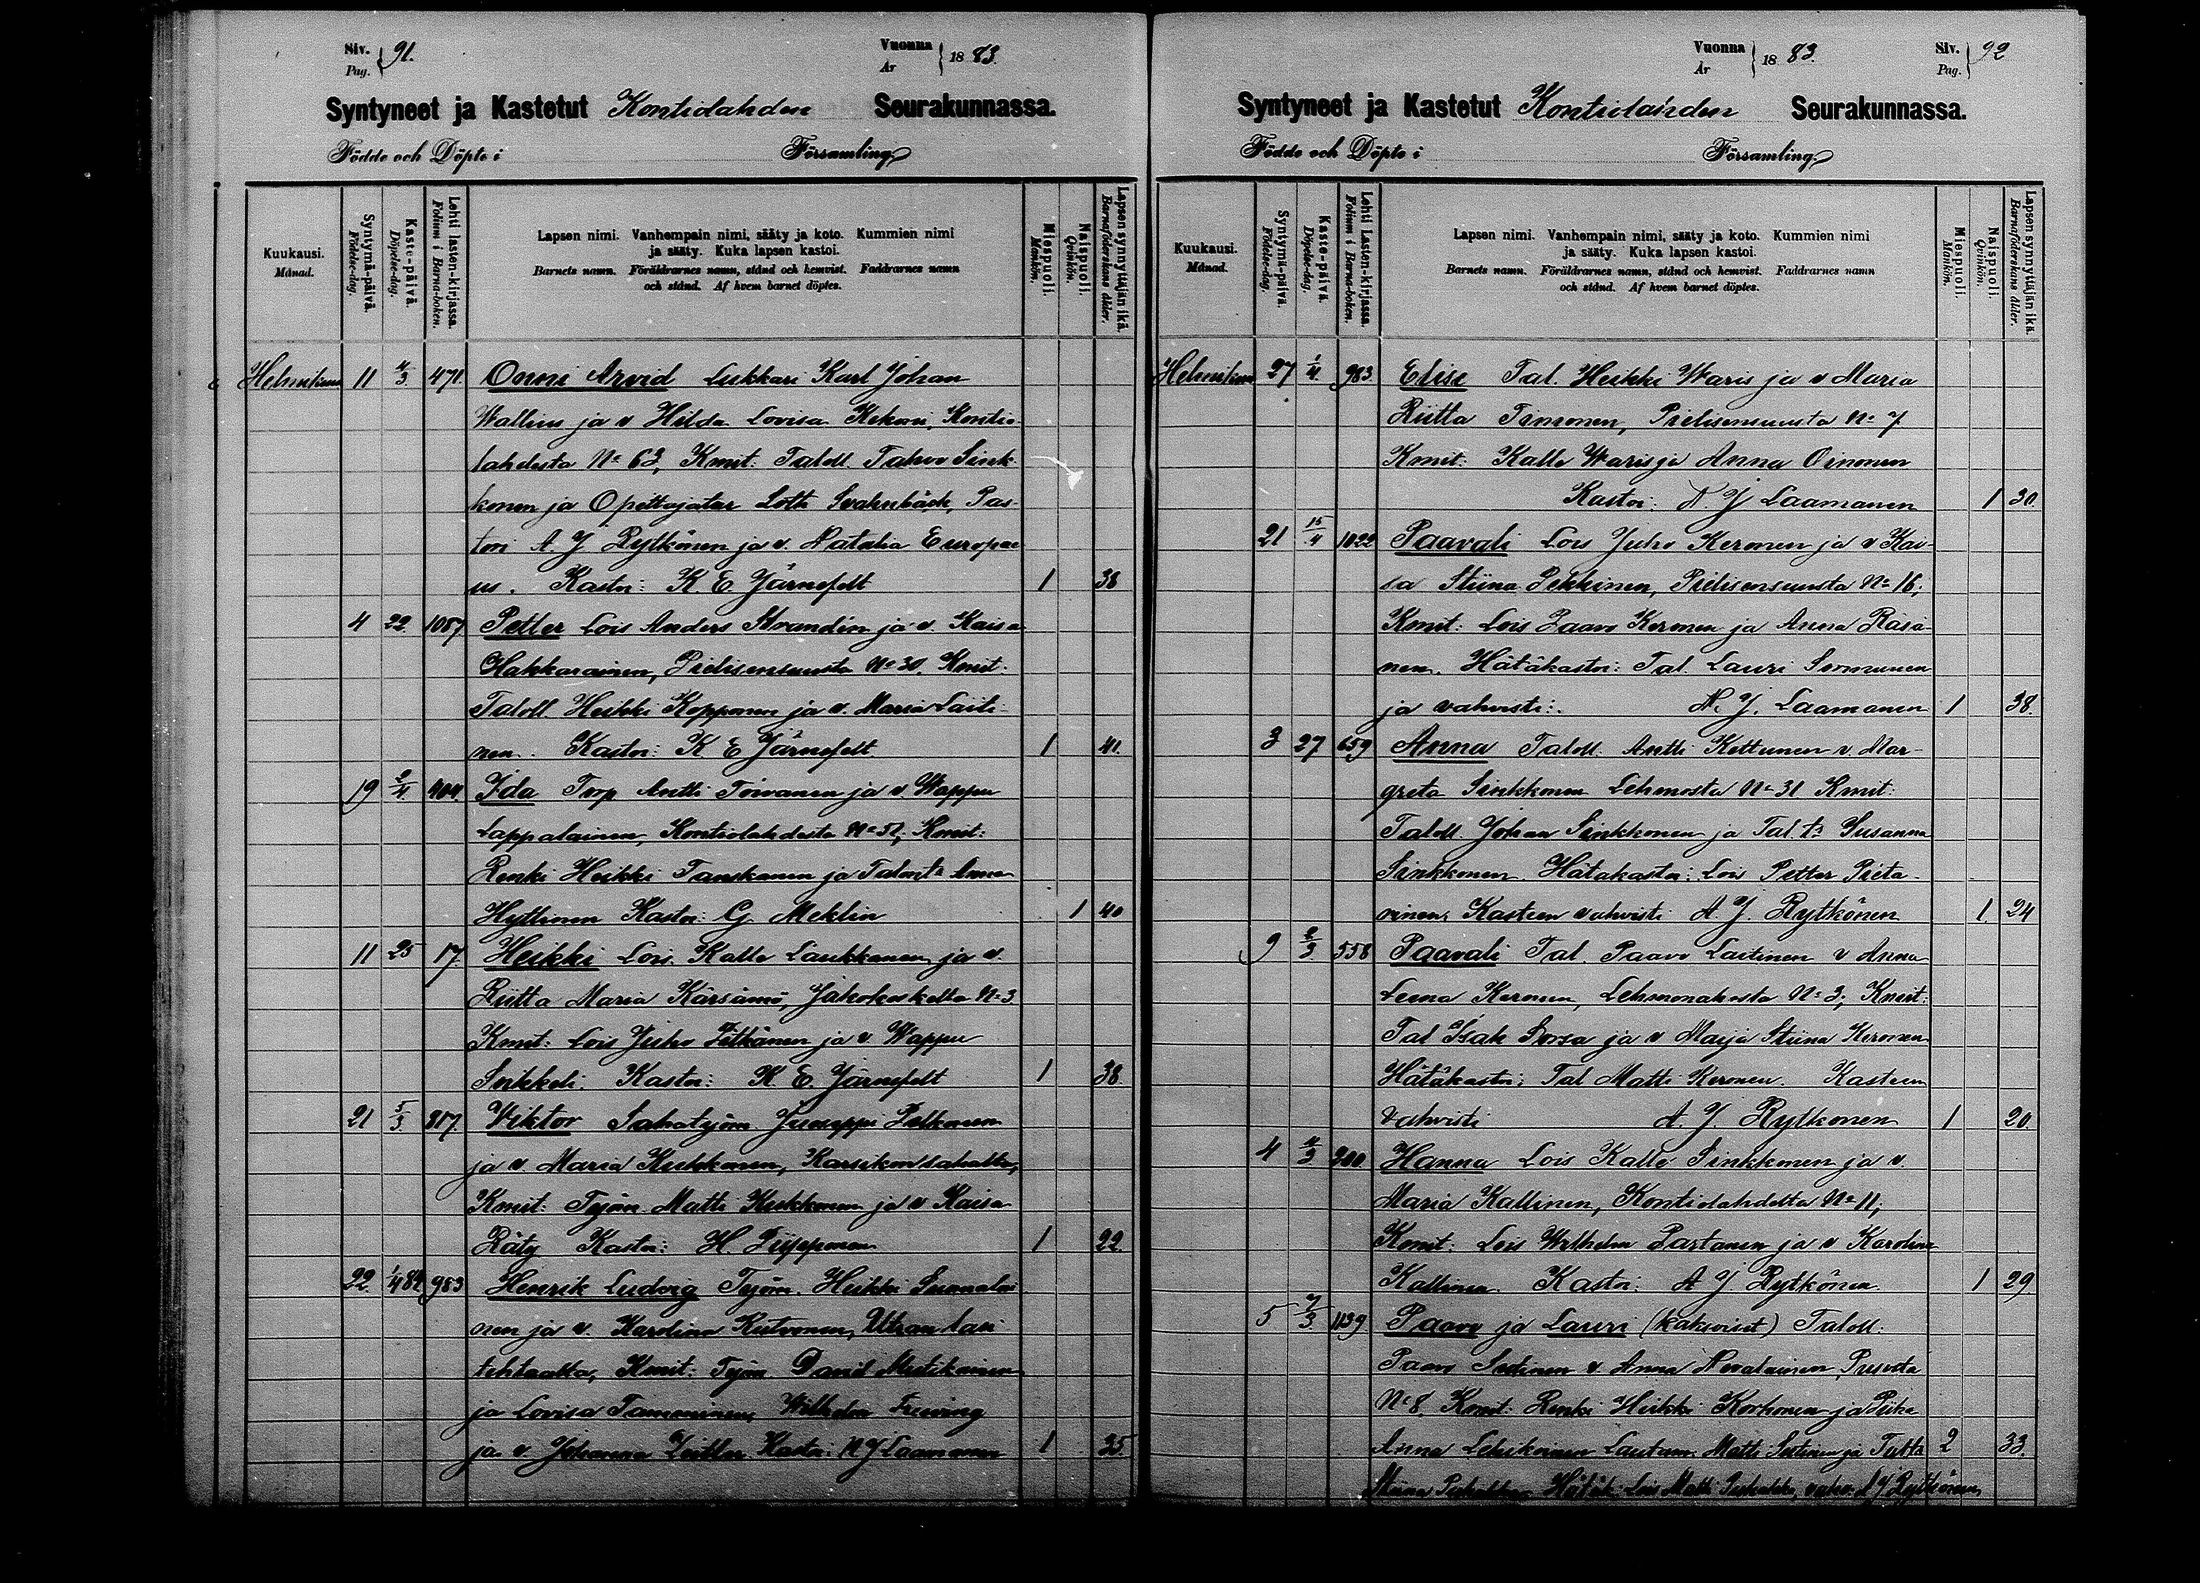 Siv. Pag. 91.
Vuonna År 1883.
Syntyneet ja Kastetut Kontiolahden Seurakunnassa.
Födde och Döpte i Församling
Kuukausi. Månad.
Syntymä-päivä. Födelse-dag.
Kaste-päivä. Döpelse-dag.
Lehti lasten-kirjassa. Folium i Barna-boken.
Lapsen nimi. Vanhempain nimi, sääty ja koto. Kummien nimi
ja sääty. Kuka lapsen kastoi.
Barnets namn. Föräldrarnes namn, stånd och hemvist. Faddrarnes namn
och stånd. Af hvem barnet döptes.
Miespuoli. Mankön.
Naispuoli. Qvinkön.
Lapsen synnyttäjän ikä. Barnaföderskans ålder.
Helmikuu 11 4/3 471. Onni Arvid Lukkari Karl Johan
Wallius ja v Hilda Lovisa Kekoni, Kontio-
lahdesta No 63, Kmit: Taloll. Tahvo Sink
konen ja Opettajatar Lotti Svahnbäck, Pas-
tori A. J Rytkönen ja v. Natalia Europae
us. Kastoi: K. E Järnefelt 1 38
4 22 1057 Petter Lois Anders Strandin ja v. Kaisa
Hakkarainen, Pielisensuusta No 30. Kmit:
Taloll. Heikki Kopponen ja v. Maria Laiti-
nen. Kastoi: K E Järnefelt. 1 41.
19 2/4 404. Ida Torp Antti Toivanen ja v. Wappu
Lappalainen, Kontiolahdesta No 51; Kmit:
Renki Heikki Tanskanen ja Anna
Hyttinen Kastoi: G. Meklin 1 40
11 25 17. Heikki Lois. Kalle Laukkanen ja v.
Riitta Maria Kärsämö, Jakokoskelta No 3
Kmit: Lois Juho Pitkänen ja v Wappu
Kastoi: K. E. Järnefelt 1 38
21 5/3 817. Viktor Sahatyöm. Juoseppi Pelkonen
ja v Maria Kukkonen,
Kmit: Työm. Matti Kukkonen ja v Kaisa
Räty Kastoi: H. Piipponen 1 22.
22. 1/4 84 983 Henrik Ludvig Työm. Heikki Suomalai
nen ja v. Karolina Kutvonen, Utran lasi
tehtaalta, Kmit: Työm. David Mustikainen
ja Lovisa Tammninen, Wilhelm
ja v Johanna Kastoi: N J Laamanen 1 35
Vuonna År 1883.
Siv. Pag. 92
Syntyneet ja Kastetut Kontiolahden Seurakunnassa.
Födde och Döpte i Församling
Kuukausi. Månad.
Syntymä-päivä. Födelse-dag.
Kaste-päivä. Döpelse-dag.
Lehti Lasten-kirjassa. Folium i Barna-boken.
Lapsen nimi. Vanhempain nimi, sääty ja koto. Kummien nimi
ja sääty. Kuka lapsen kastoi.
Barnets namn. Föräldrarnes namn, stånd och hemvist. Faddrarnes namn
och stånd. Af hvem barnet döptes.
Miespuoli. Mankön.
Naispuoli. Qvinkön.
Lapsen synnyttäjän ikä. Barnaföderskans ålder.
Helmikuu 27 1/4. 983. Elise Tal. Heikki Waris ja v Maria
Riitta Timonen, Pielisensuusta No 7
Kmit: Kalle Waris ja Anna Oinonen
Kastoi: N. J Laamanen 1 30.
21 15/4 1022 Paavali Lois Juho Keronen ja v Kai-
sa Stiina Pekkinen, Pielisensuusta No 16;
Kmit: Lois Paavo Keronen ja Anna Räsä-
nen. Hätäkastoi: Tal. Lauri Sormunen
ja vahvisti: N. J. Laamanen 1 38.
3 27 659 Anna Taloll. Antti Kettunen v. Mar-
greta Sinkkonen Lehmosta No 31 Kmit:
Taloll. Johan Sinkkonen ja Tal. tr Susanna
Sinkkonen. Hätäkastoi: Lois Petter Pieta-
rinen, Kasteen vahvisti A. J. Rytkönen 1 24
9 2/3 558 Paavali Tal. Paavo Laitinen v Anna
Leena Keronen, Lehmonahosta No 3; Kmit:
Tal Isak Sorsa ja v Maija Stiina Keronen
Hätäkastoi: Tal Matti Keronen. Kasteen
vahvisti A. J Rytkönen 1 20.
4 4/3 200 Hanna Lois Kalle Sinkkonen ja v.
Maria Kallinen, Kontiolahdelta No 11;
Kmit: Lois Wilhelm Partanen ja v Karolina
Kallinen. Kastoi: A J Rytkönen. 1 29
5 7/3 1139 Paavo ja Lauri (kaksoiset) Taloll:
Paavo Sutinen v. Anna Nevalainen,
No 8. Kmit: Renki Heikki Korhonen ja Piika
Anna Lehikoinen Lautam. Matti Sutinen ja 2 33.
Stiina Hätäk. Lois Matti vahv. A J Rytkönen